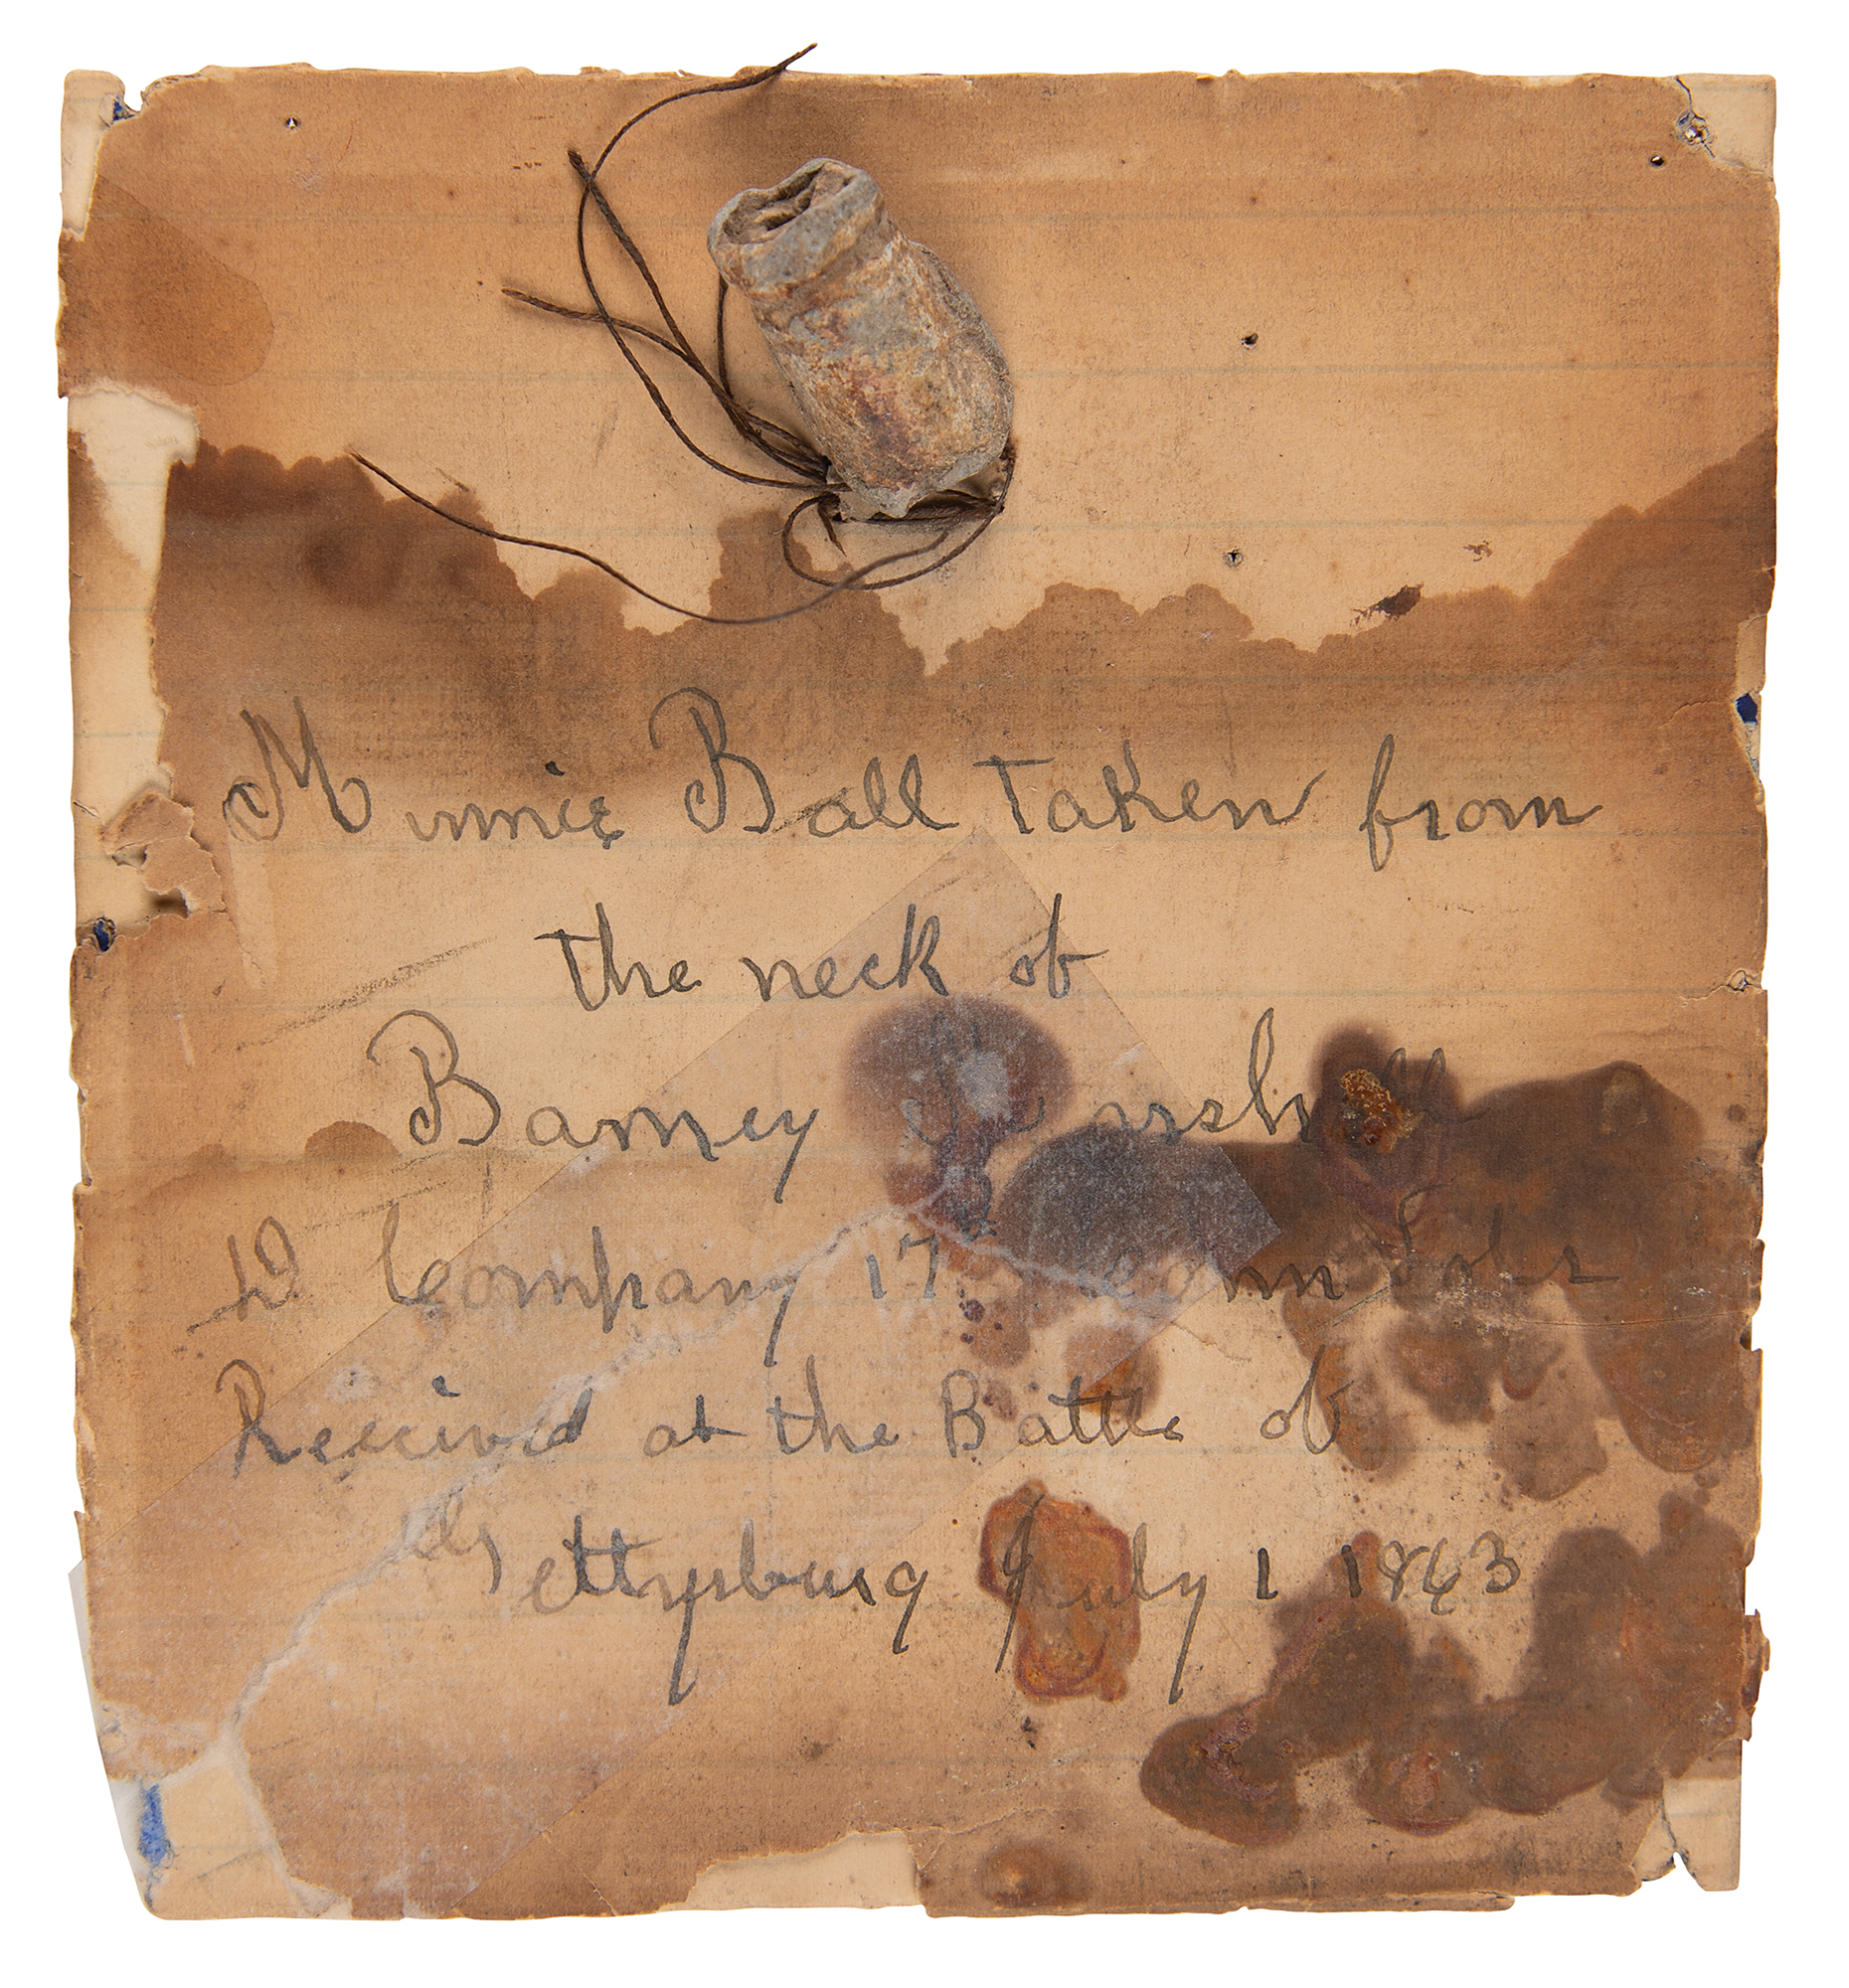 Minnie Ball Taken from
the neck of
Barney Marshall
D Company 17th Conn Vols
Received at the Battle of
Gettysburg July 1 1863